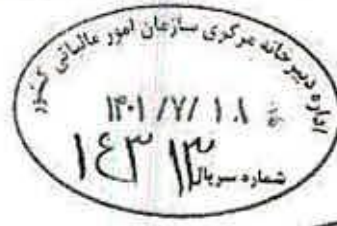 اداره دبیرخانه مرکزی سازمان امور مالیاتی کشور
۱۴۰۱/۷/۱۰۸
۱۴۳۱۳
شماره سریال